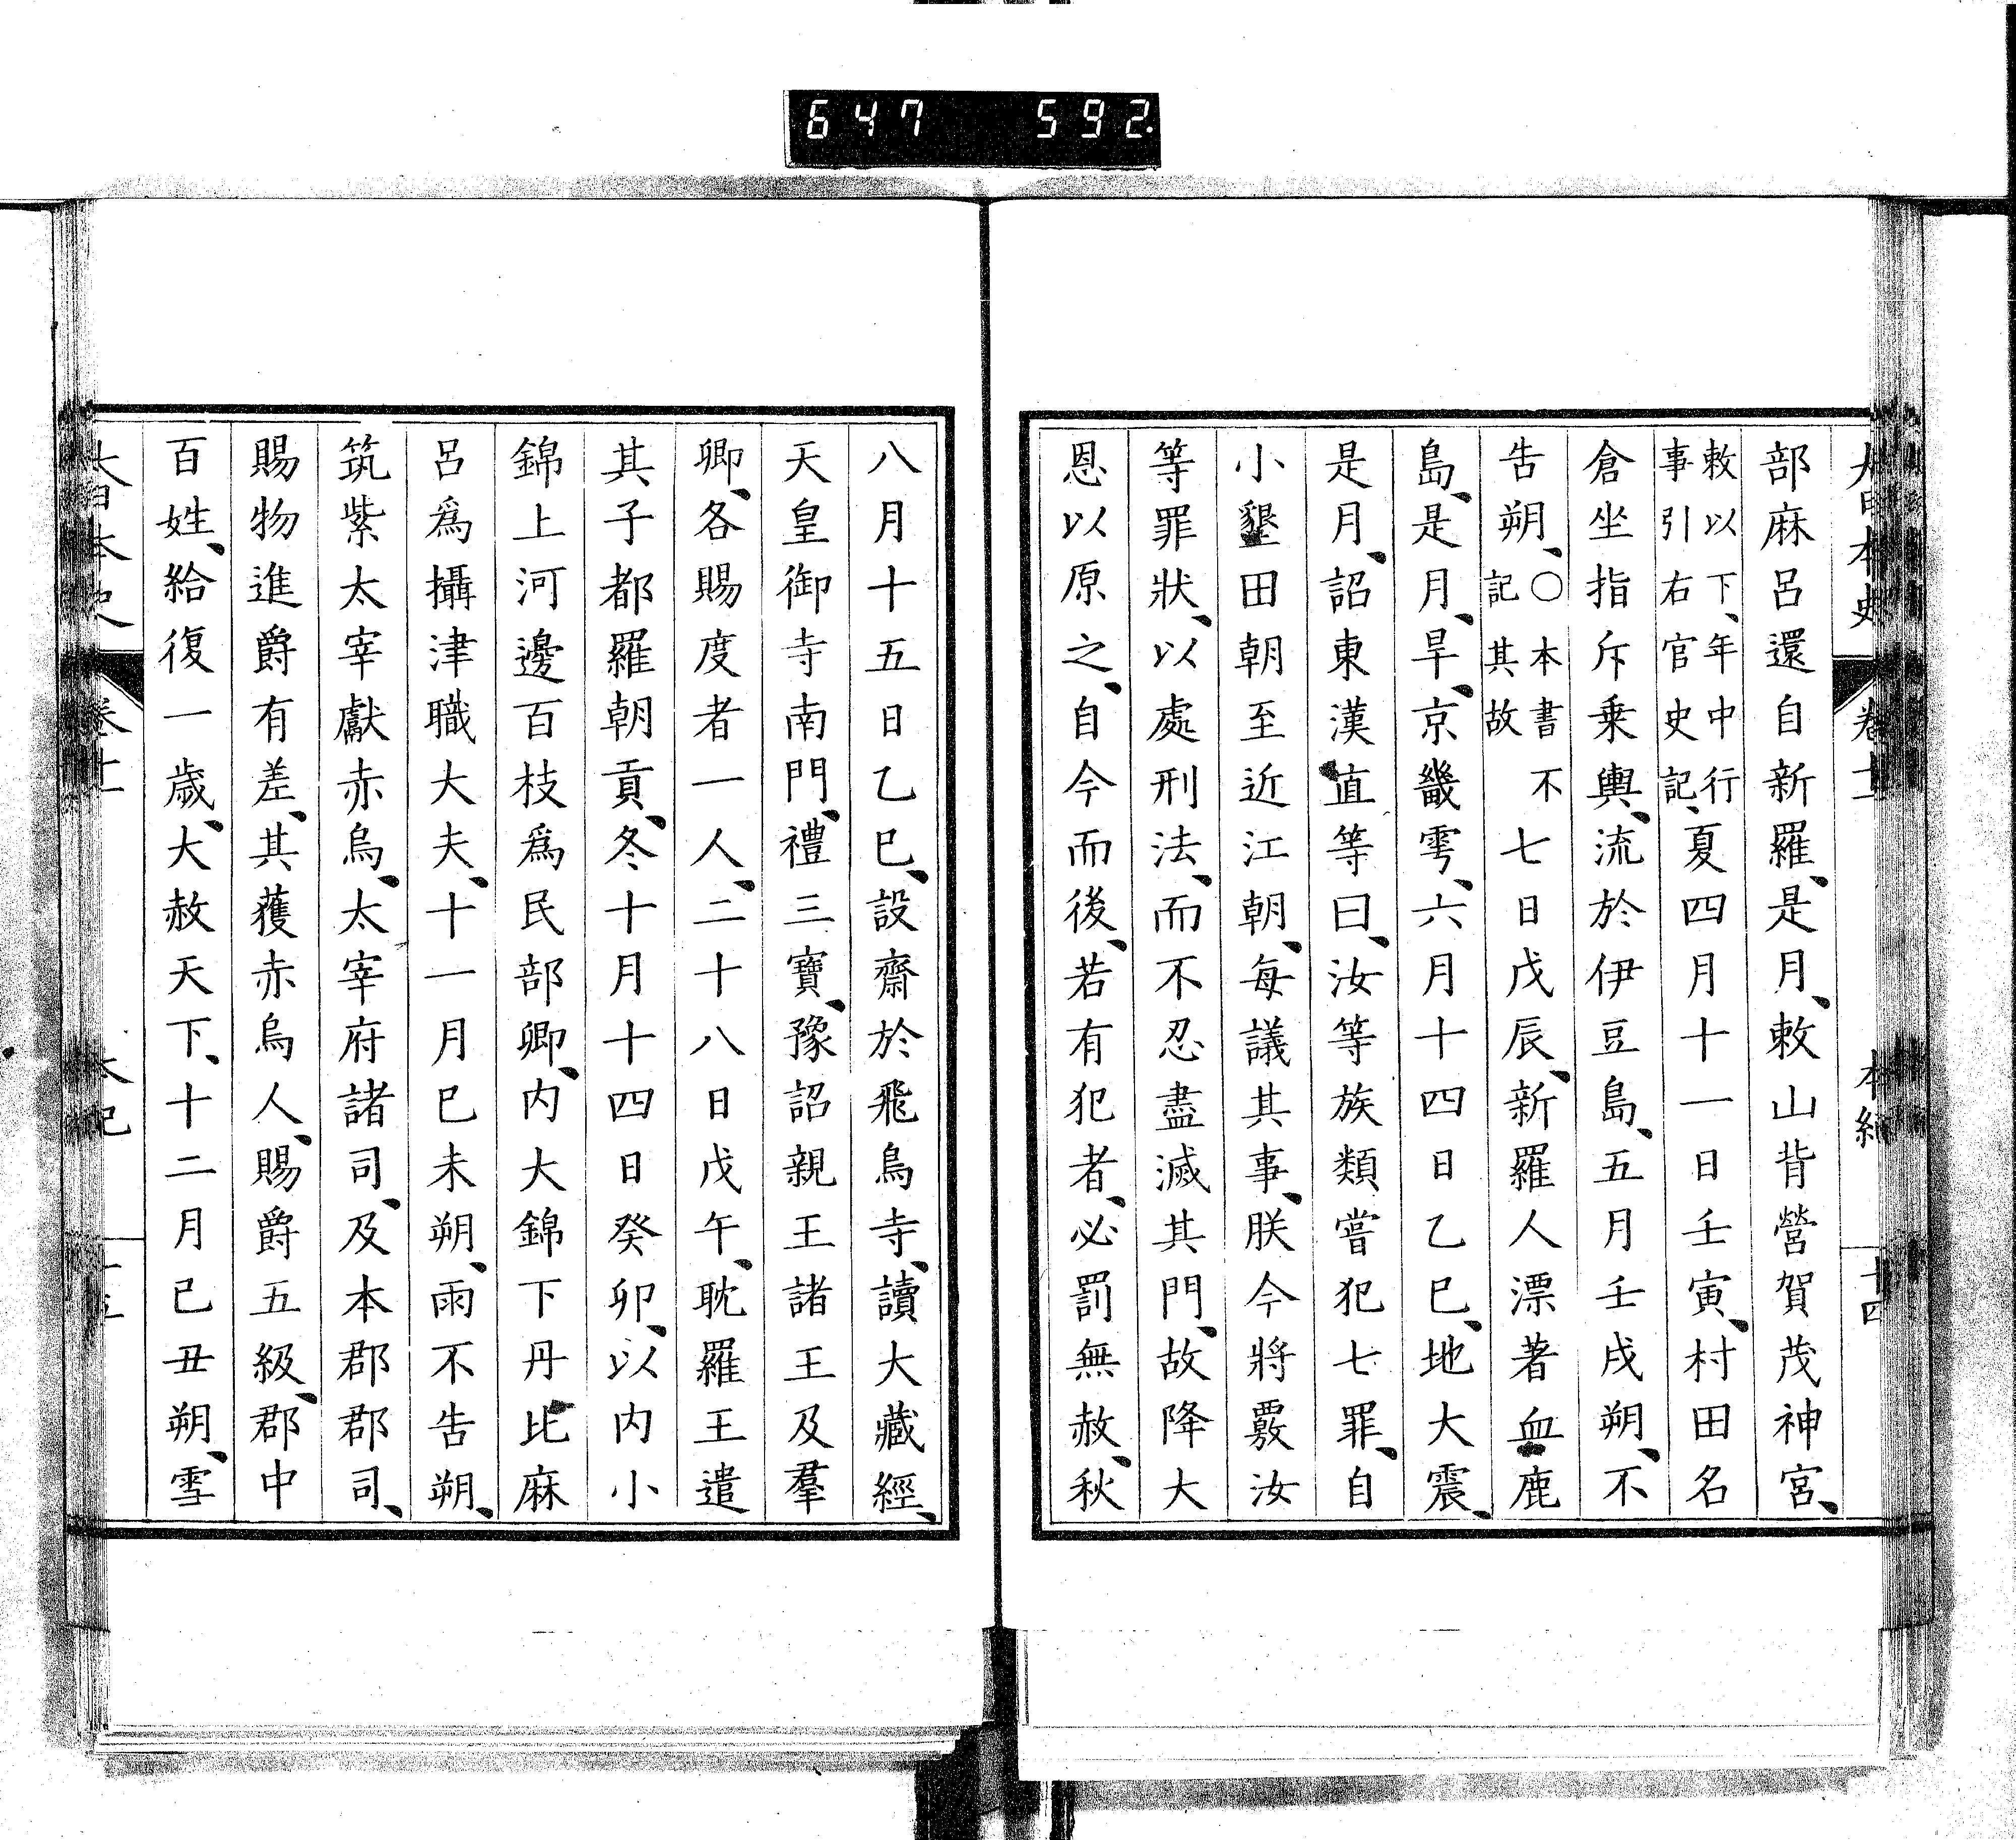 647 592
大日本史 卷十一 本紀 十四
部麻呂還自新羅、是月、敕山背營賀茂神宮、
敕以下、年中行
事引右官史記、
夏四月十一日壬寅、村田名
倉坐指斥乗輿、流於伊豆島、五月壬戌朔、不
告朔、
〇本書不
記其故
七日戊辰、新羅人漂著血鹿
島、是月、旱、京畿雩、六月十四日乙巳、地大震、
是月、詔東漢直等曰、汝等族類嘗犯七罪、自
小墾田朝至近江朝、每議其事、朕今將覈汝
等罪狀、以處刑法、而不忍盡滅其門、故降大
恩以原之、自今而後、若有犯者、必罰無赦、秋
八月十五日乙巳、設齋於飛鳥寺、讀大藏經、
天皇御寺南門、禮三寶、豫詔親王諸王及羣
卿、各賜度者一人、二十八日戊午、耽羅王遣
其子都羅朝貢、冬十月十四日癸卯、以内小
錦上河邊百枝爲民部卿、内大錦下丹比麻
呂爲攝津職大夫、十一月巳未朔、雨不告朔、
筑紫太宰獻赤烏、太宰府諸司、及本郡郡司、
賜物進爵有差、其獲赤烏人、賜爵五級、郡中
百姓、給復一歲、大赦天下、十二月己丑朔、雪
大日本史 卷十一 本紀 十五